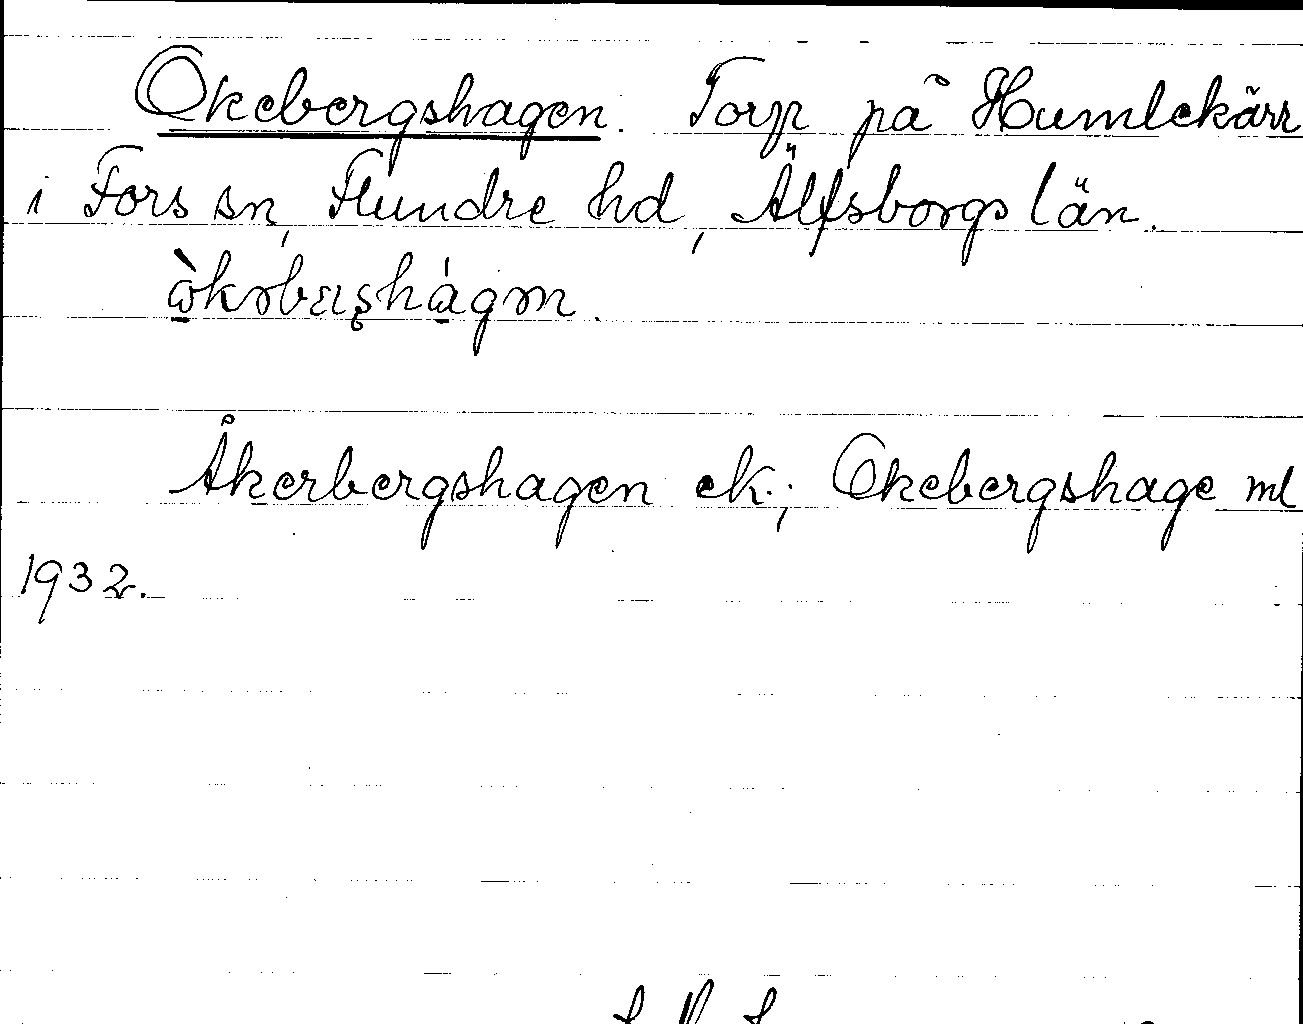 Okebergshagen. Torp på Humlekärr
i Fors sn, Flundre hd, Älfsborgs län.
Åkerbergshagen ek.; Okebergshage ml
1932.